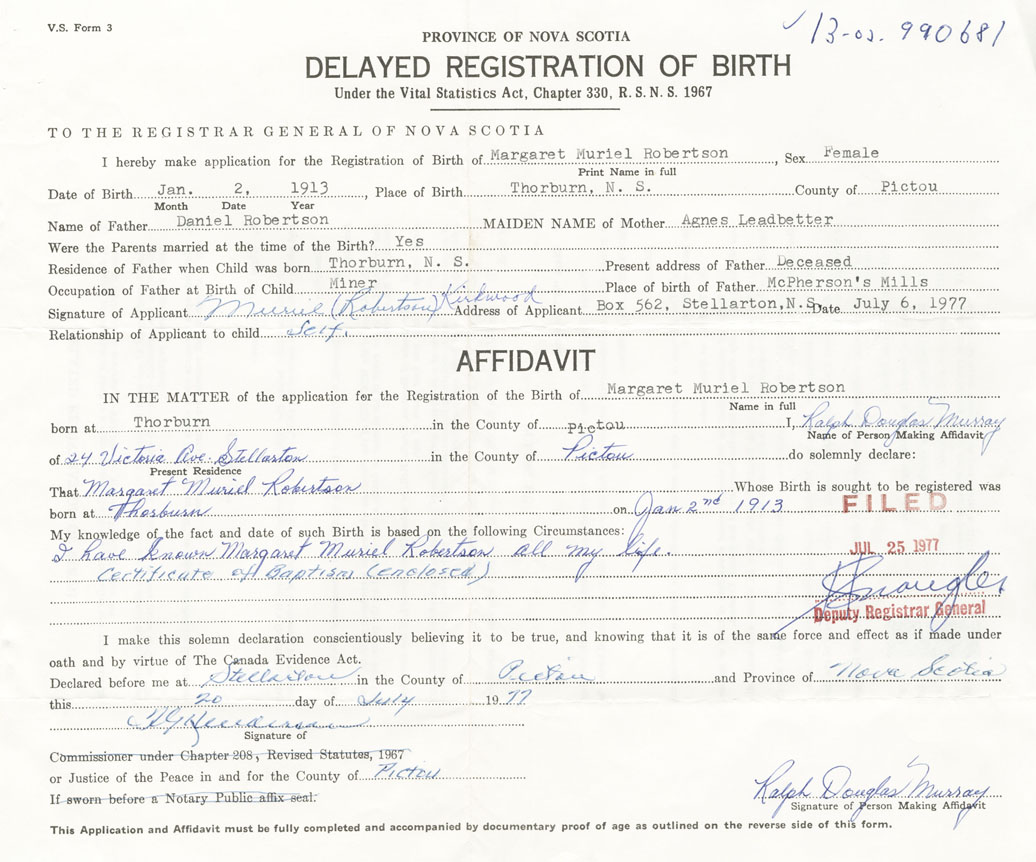 V.S. Form 3
13-os. 990681
PROVINCE OF NOVA SCOTIA
DELAYED REGISTRATION OF BIRTH
Under the Vital Statistics Act, Chapter 330, R. S. N. S. 1967
TO THE REGISTRAR GENERAL OF NOVA SCOTIA
I hereby make application for the Registration of Birth of Margaret Muriel Robertson, Sex Female
Print Name in full
Date of Birth Jan. 2, 1913, Place of Birth Thorburn, N. S. County of Pictou
Month Date Year
Name of Father Daniel Robertson MAIDEN NAME of Mother Agnes Leadbetter
Were the Parents married at the time of the Birth? Yes
Residence of Father when Child was born Thorburn, N. S. Present address of Father Deceased
Occupation of Father at Birth of Child Miner Place of birth of Father McPherson's Mills
Signature of Applicant Muriel (Robertson) Kirkwood Address of Applicant Box 562, Stellarton, N.S. Date July 6, 1977
Relationship of Applicant to child Self.
AFFIDAVIT
IN THE MATTER of the application for the Registration of the Birth of Margaret Muriel Robertson
Name in full
born at Thorburn in the County of Pictou I, Ralph Douglas Murray
Name of Person Making Affidavit
of 24 Victoria Ave. Stellarton in the County of Pictou do solemnly declare:
Present Residence
That Margaret Muriel Robertson Whose Birth is sought to be registered was
born at Thorburn on Jan 2nd 1913
FILED
My knowledge of the fact and date of such Birth is based on the following Circumstances:
I have known Margaret Muriel Robertson all my life.
JUL 25 1977
Certificate of Baptism (enclosed)
Deputy Registrar General
I make this solemn declaration conscientiously believing it to be true, and knowing that it is of the same force and effect as if made under
oath and by virtue of The Canada Evidence Act.
Declared before me at Stellarton in the County of Pictou and Province of Nova Scotia
this 20 day of July 1977
Signature of
Commissioner under Chapter 208, Revised Statutes, 1967
or Justice of the Peace in and for the County of Pictou
If sworn before a Notary Public affix seal.
Ralph Douglas Murray
Signature of Person Making Affidavit
This Application and Affidavit must be fully completed and accompanied by documentary proof of age as outlined on the reverse side of this form.